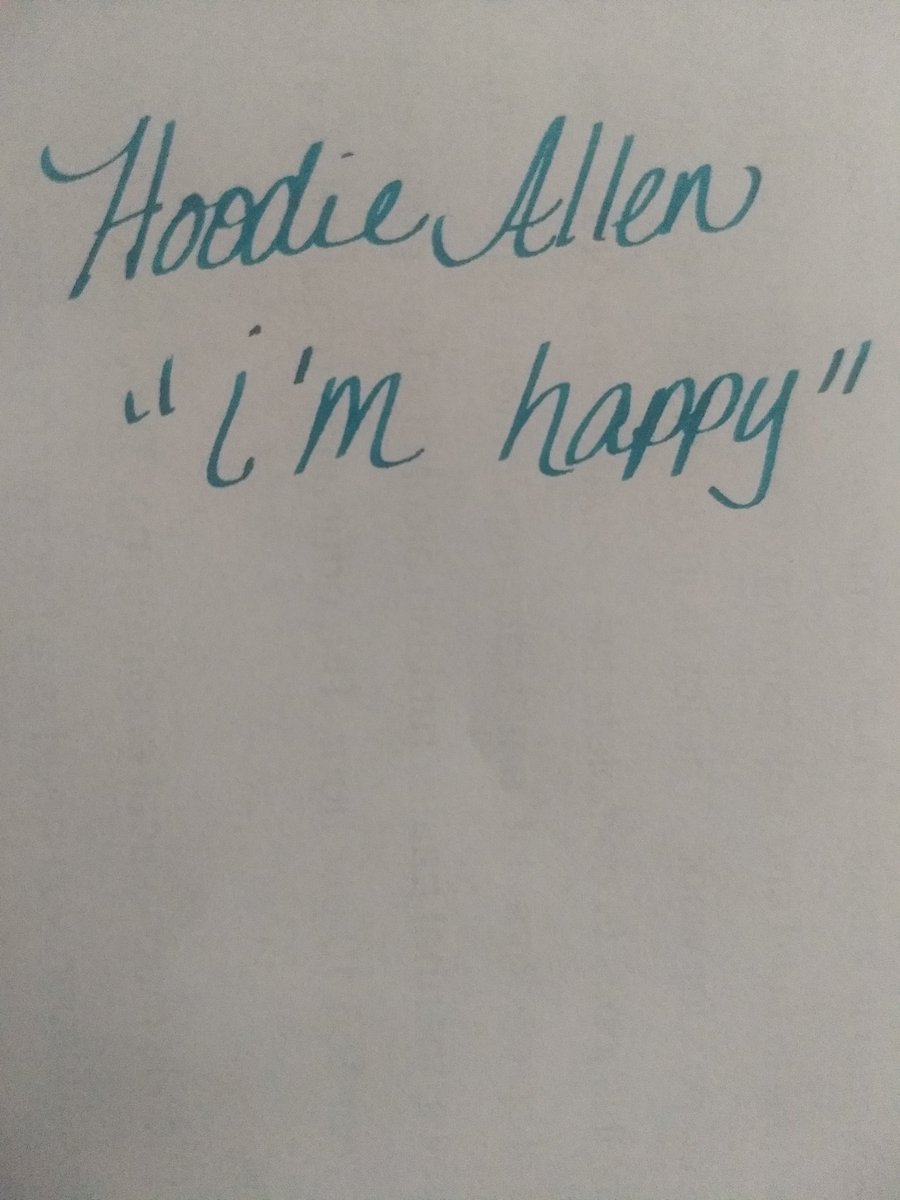 Hoodie Allen
"i'm happy"